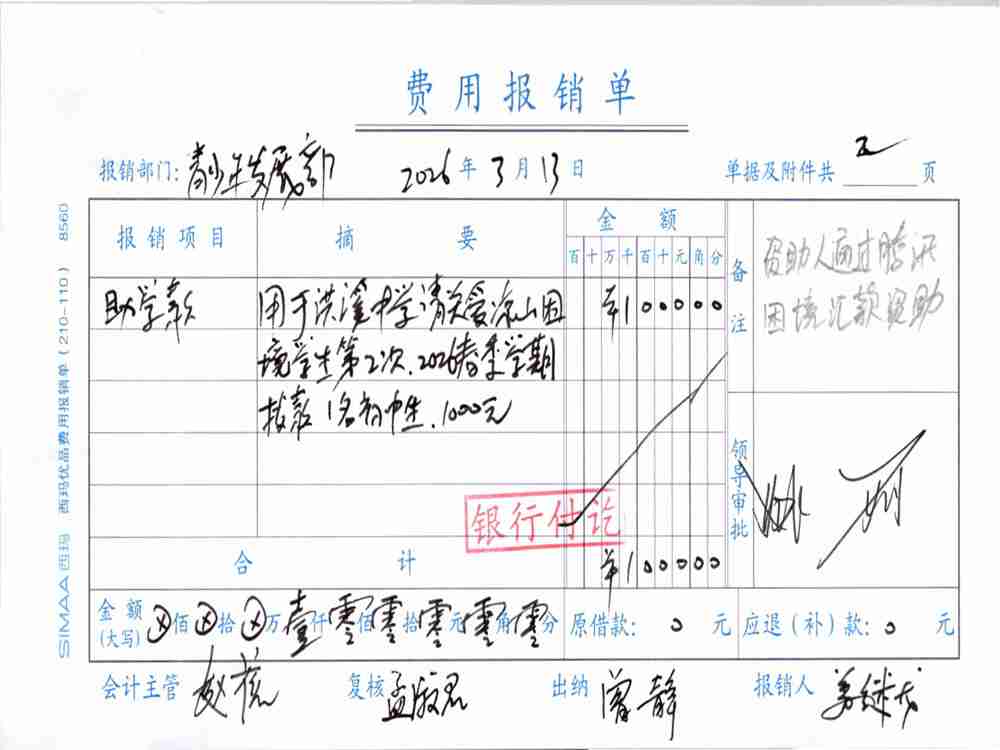 费用报销单
报销部门: 青少年发展部 2026年3月13日 单据及附件共 页
报销项目 摘要 金额 备注
百十万千百十元角分
助学款 用于洪溪中学请关爱凉山困 ¥100000 资助人通过腾讯
境学生第2次.2026春季学期 困境汇款资助
拨款1名初中生.1000元
领导审批
银行付讫
合计 ¥100000
金额(大写) ⊗佰⊗拾⊗万壹仟零佰零拾零元零角零分 原借款: 0 元 应退(补)款: 0 元
会计主管 复核 出纳 曾静 报销人
SIMAA 西玛 西玛优品费用报销单(210-110) 8560